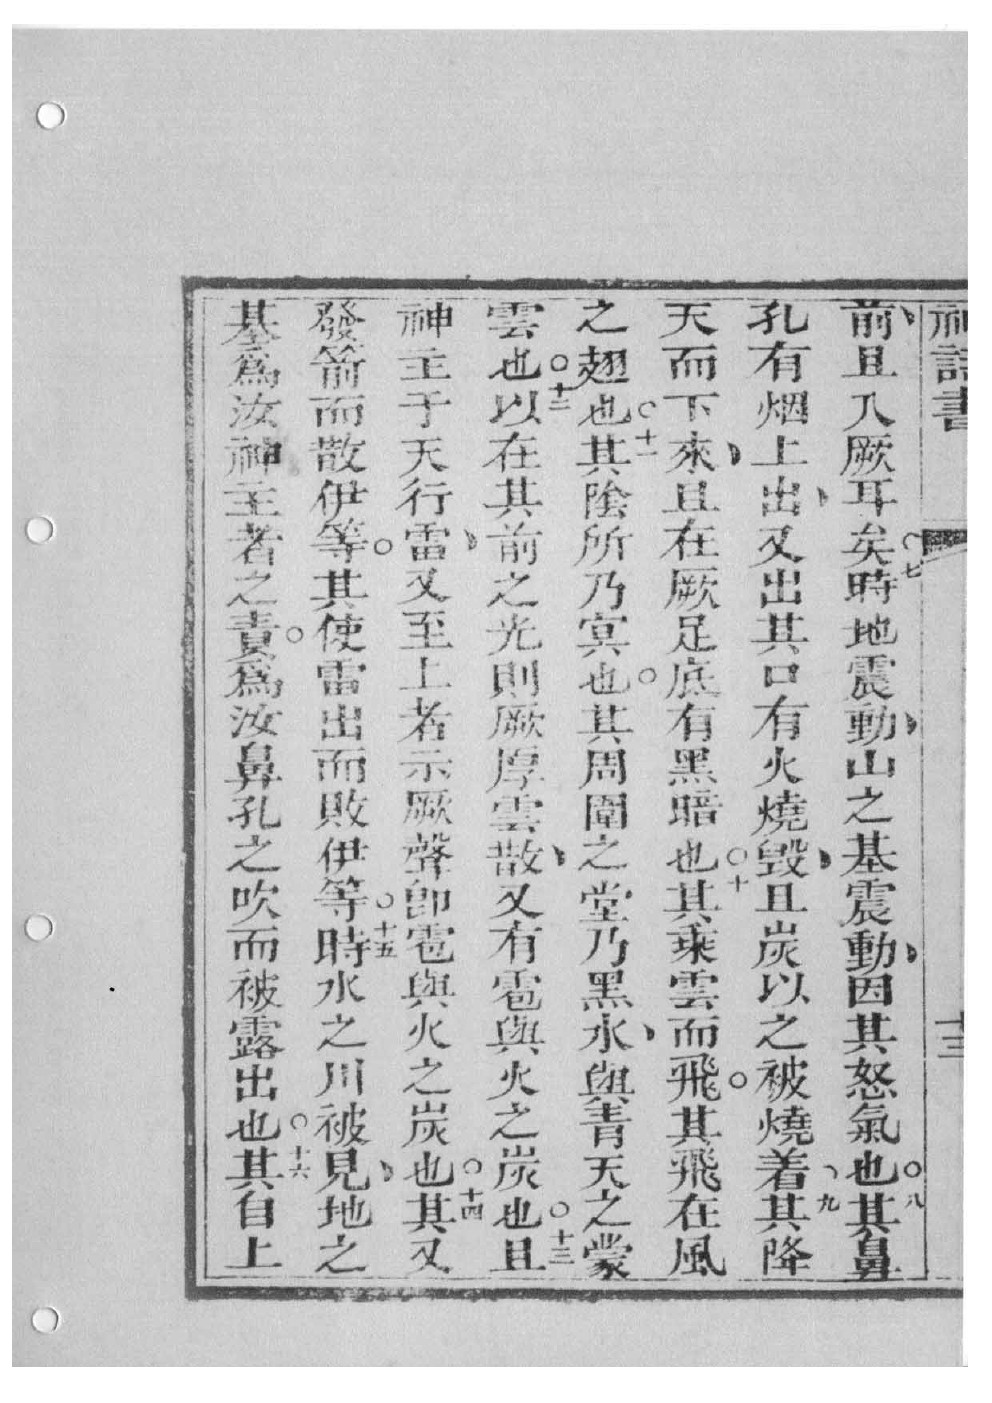 神詩書 十三
前、且入厥耳矣。七時地震動、山之基震動、因其怒氣也。八其鼻
孔有烟上出、又出其口有火燒毀、且炭以之被燒着、九其降
天而下來、且在厥足底有黑暗也。十其乘雲而飛。其飛在風
之翅也。十一其陰所乃冥也。其周圍之堂乃黑水、與青天之蒙
雲也。十二以在其前之光則厥厚雲散、又有雹與火之炭也。十三且
神主于天行雷、又至上者示厥聲卽雹與火之炭也。十四其又
發箭而散伊等。其使雷出而敗伊等。十五時水之川被見、地之
基爲汝神主者之責。爲汝鼻孔之吹而被露出也。十六其自上